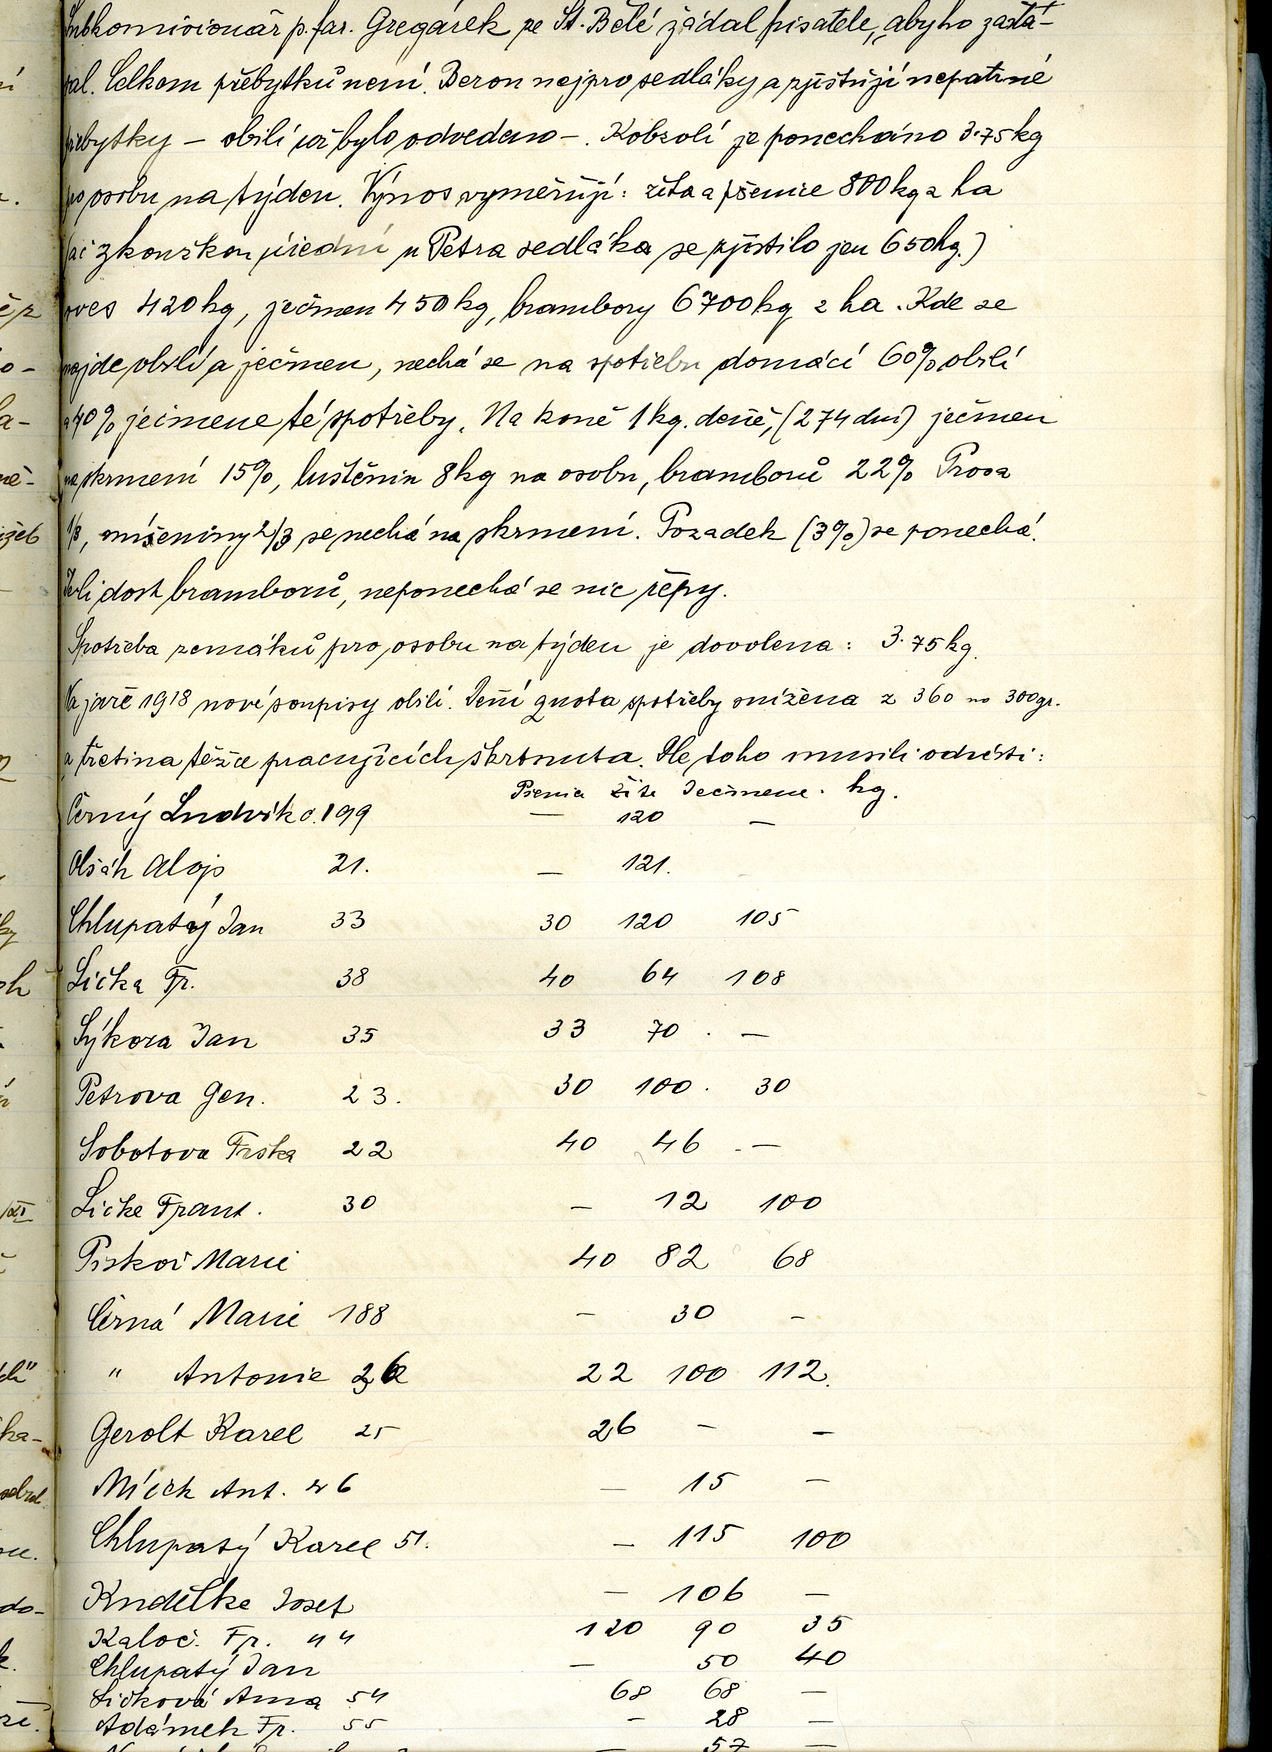 Subkomisionář p. far. Gregárek ze St. Bělé žádal pisatele, aby ho zastá-
val. Celkem přebytků není. Berou nejprv sedláky a zjišťují nepatrné
přebytky – obilí již bylo odvedeno –. Kobzolí je ponecháno 3.75 kg
pro osobu na týden. Výnos vyměřují: žita a pšenice 800 kg z ha
(ač zkouškou úřední u Petra sedláka se zjistilo jen 650 kg.)
oves 420 kg, ječmen 450 kg, brambory 6700 kg z ha. Kde se
najde obilí a ječmen, nechá se na spotřebu domácí 60% obilí
a 40% ječmene té spotřeby. Na koně 1 kg. deně, (274 dní) ječmen
na skrmení 15%, luštěnin 8 kg na osobu, bramborů 22% Prosa
1/3, míšeniny 2/3 se nechá na skrmení. Pozadek (3%) se ponechá.
Je-li dost bramborů, neponechá se nic řěpy.
Spotřeba zemáků pro osobu na týden je dovolena: 3.75 kg.
Na jaře 1918 nové soupisy obilí. Dení quota spotřeby snížena z 360 na 300 gr.
a třetina těžce pracujících škrtnuta. Dle toho musili odvésti:
Pšenice Žita Ječmene. kg.
Černý Ludvík č. 199 — 120 —
Olšák Alojs 21. — 121.
Chlupatý Jan 33 30 120 105
Lička Fr. 38 40 64 108
Sýkora Jan 35 33 70 . —
Petrova Gen. 23. 30 100. 30
Sobotova Frska 22 40 46 . —
Ličke Frant. 30 — 12 100
Piskoř Marie 40 82 68
Černá Marie 188 – 30 –
" Antonie 26 22 100 112.
Gerolt Karel 25 26 – –
Míček Ant. 46 — 15 —
Chlupatý Karel 51. — 115 100
Kudělka Josef — 106 —
Kaloč. Fr. 44 120 90 35
Chlupatý Jan — 50 40
Ličková Anna 54 68 68 —
Adámek Fr. 55 – 28 —
— 57 —